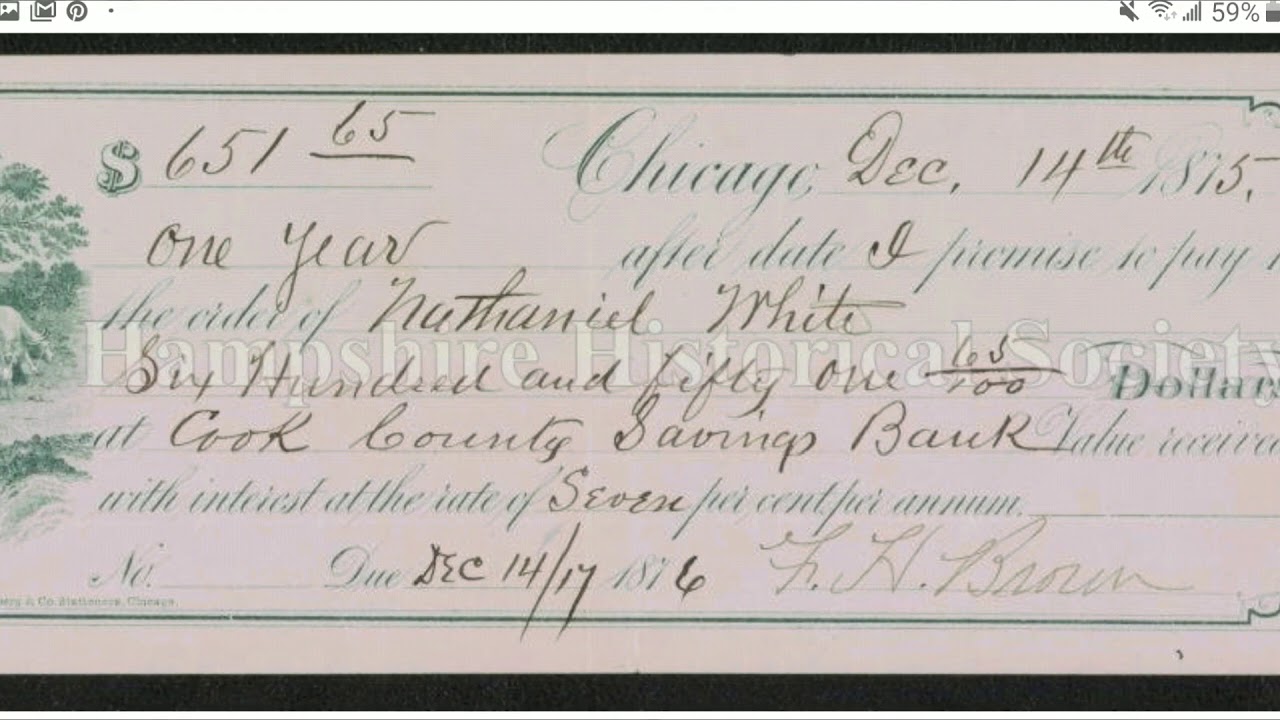 59%
$ 651 65
Chicago, Dec. 14th 1875.
One Year after date I promise to pay
the order of Nathaniel White
Hampshire Historical Society
Six Hundred and fifty One 65/100 Dollar
at Cook County Savings Bank Value receive
with interest at the rate of Seven per cent per annum.
No. Due DEC 14/17 1876 F. H. Brown
& Co. Stationers, Chicago.